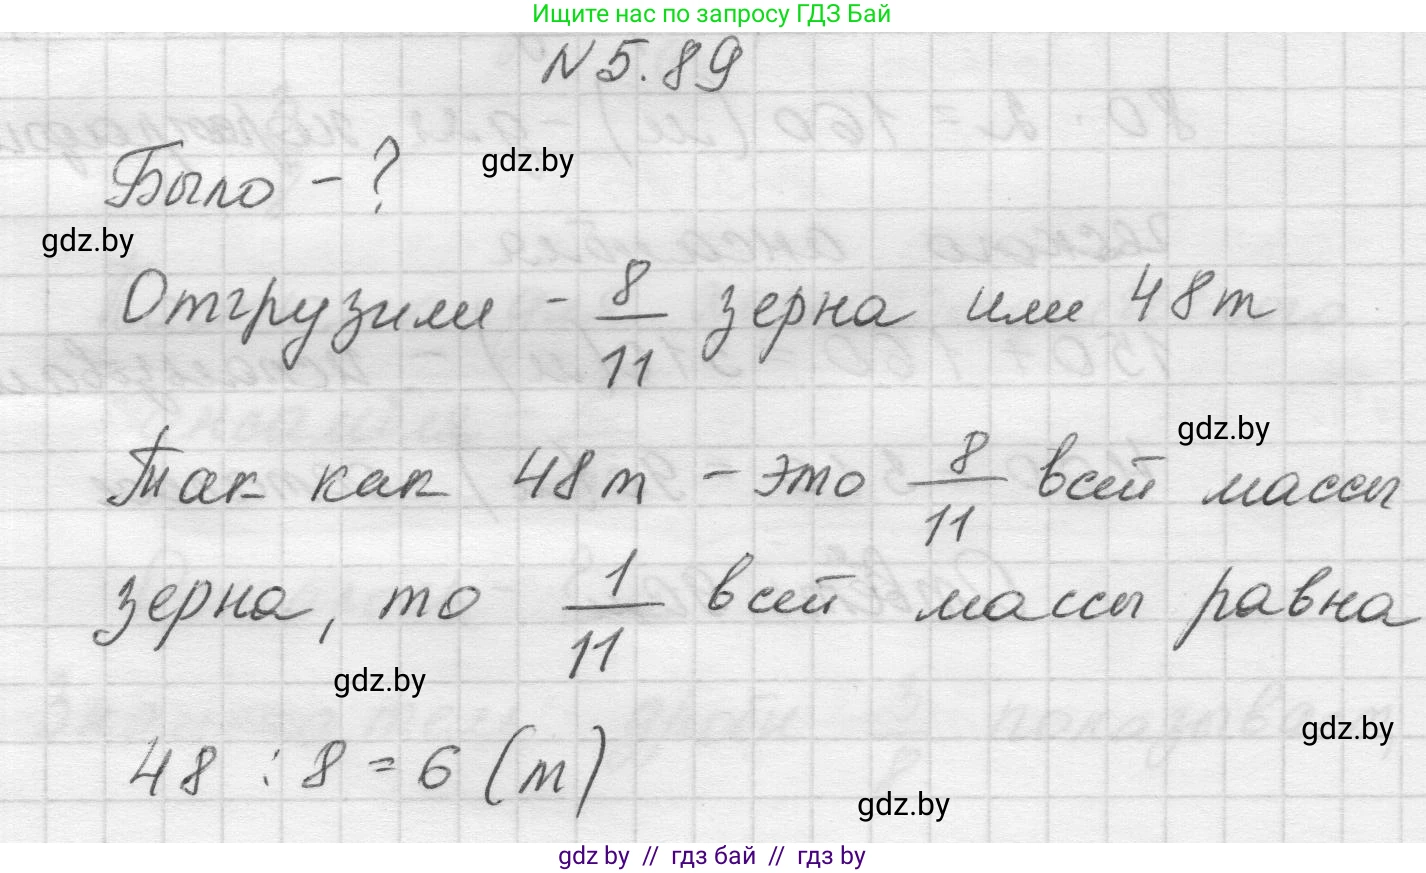 Ищите нас по запросу ГДЗ Бай
№ 5.89
Было - ?
gdz.by
gdz.by
Отгрузили - 8/11 зерна или 48 т
gdz.by
Так как 48 т - это 8/11 всей массы
зерна, то 1/11 всей массы равна
gdz.by
gdz.by
48 : 8 = 6 (т)
gdz.by
gdz by // гдз бай // гдз by